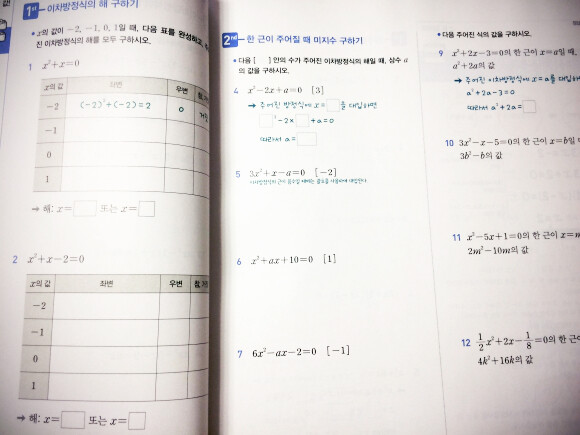 1st 이차방정식의 해 구하기
* x의 값이 -2, -1, 0, 1일 때, 다음 표를 완성하고,
진 이차방정식의 해를 모두 구하시오.
1 x²+x=0
x의 값 좌변 우변
-2 (-2)²+(-2)=2 0
-1
0
1
→ 해: x= 또는 x=
2 x²+x-2=0
x의 값 좌변 우변
-2
-1
0
1
→ 해: x= 또는 x=
2nd 한 근이 주어질 때 미지수 구하기
* 다음 [ ] 안의 수가 주어진 이차방정식의 해일 때, 상수 a
의 값을 구하시오.
4 x²-2x+a=0 [3]
→ 주어진 방정식에 x= 을 대입하면
²-2× +a=0
따라서 a=
5 3x²+x-a=0 [-2]
6 x²+ax+10=0 [1]
7 6x²-ax-2=0 [-1]
* 다음 주어진 식의 값을 구하시오.
9 x²+2x-3=0의 한 근이 x=a일 때,
a²+2a의 값
→ 주어진 이차방정식에 x=a를 대입하
a²+2a-3=0
따라서 a²+2a=
10 3x²-x-5=0의 한 근이 x=b일
3b²-b의 값
11 x²-5x+1=0의 한 근이 x=m
2m²-10m의 값
12 1/2x²+2x-1/8=0의 한 근
4k²+16k의 값